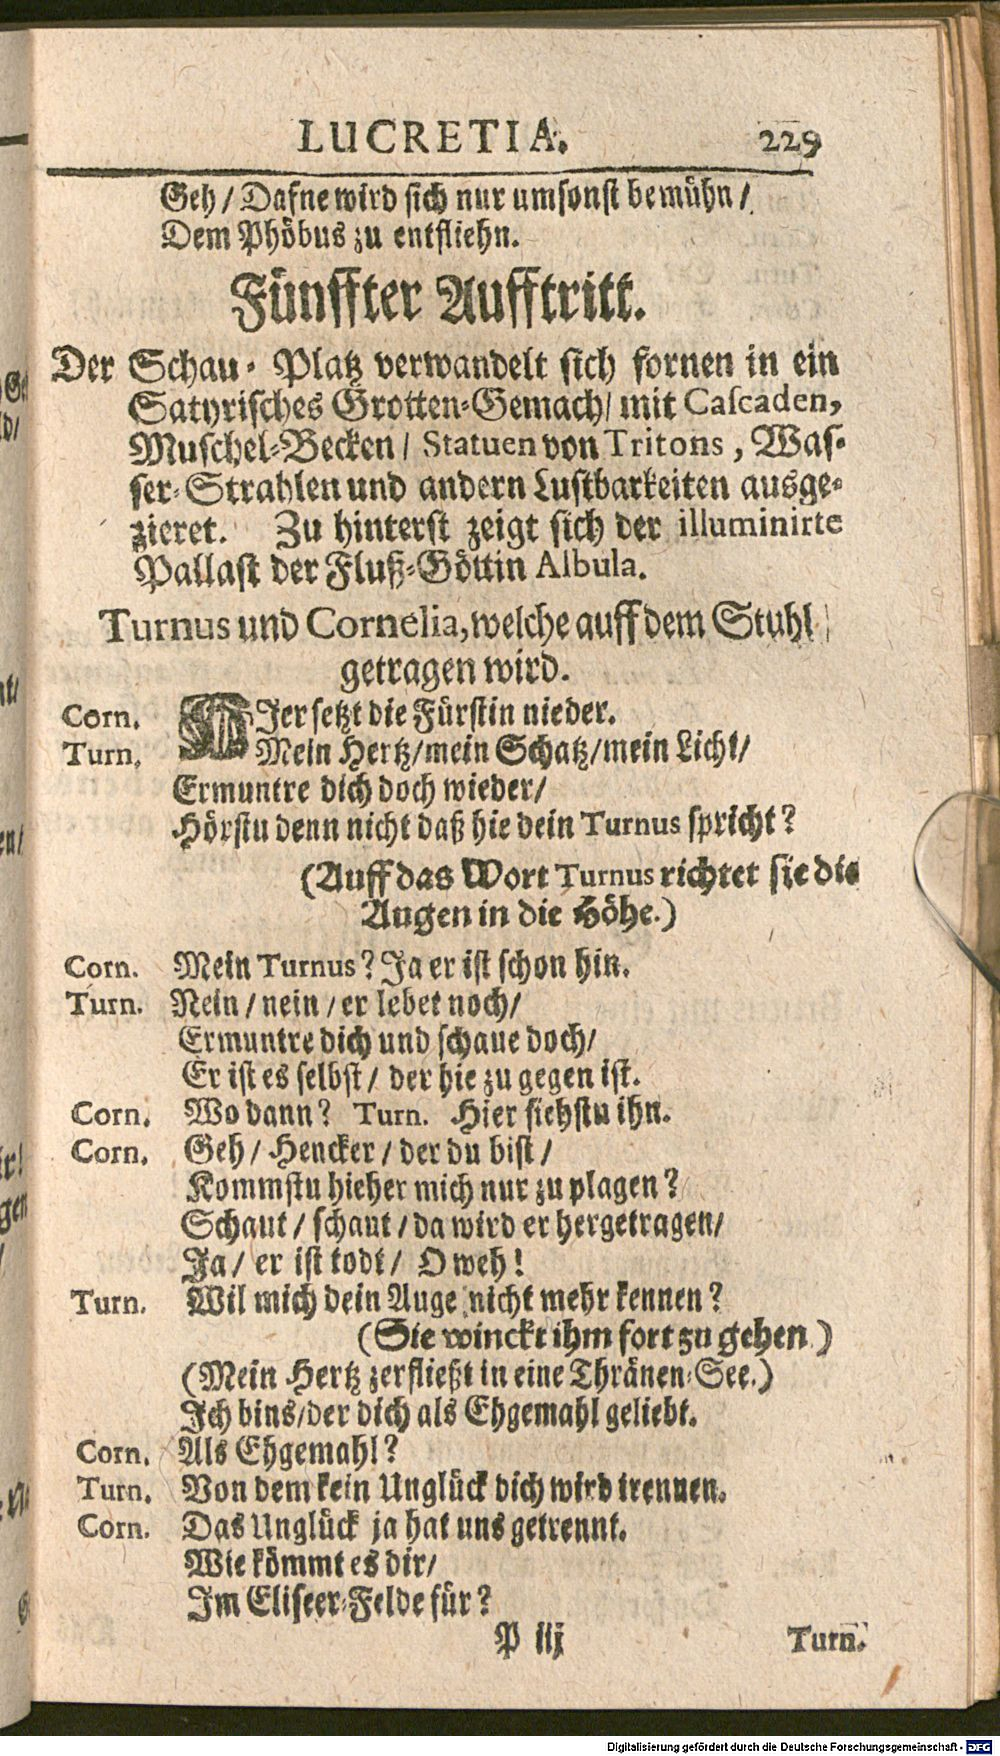 LUCRETIA. 229
Geh / Dafne wird sich nur umsonst bemühn /
Dem Phöbus zu entfliehn.
Fünffter Aufftritt.
Der Schau-Platz verwandelt sich fornen in ein
Satyrisches Grotten-Gemach / mit Cascaden,
Muschel-Becken / Statuen von Tritons, Was-
ser-Strahlen und andern Lustbarkeiten ausge-
zieret. Zu hinterst zeigt sich der illuminirte
Pallast der Fluß-Göttin Albula.
Turnus und Cornelia, welche auff dem Stuhl
getragen wird.
Corn. HIer setzt die Fürstin nieder.
Turn. Mein Hertz / mein Schatz / mein Licht /
Ermuntre dich doch wieder /
Hörstu denn nicht daß hie dein Turnus spricht?
(Auff das Wort Turnus richtet sie die
Augen in die Höhe.)
Corn. Mein Turnus? Ja er ist schon hin.
Turn. Nein / nein / er lebet noch /
Ermuntre dich und schaue doch /
Er ist es selbst / der hie zu gegen ist.
Corn. Wo dann? Turn. Hier siehstu ihn.
Corn. Geh / Hencker / der du bist /
Kommstu hieher mich nur zu plagen?
Schaut / schaut / da wird er hergetragen /
Ja / er ist todt / O weh!
Turn. Wil mich dein Auge nicht mehr kennen?
(Sie winckt ihm fort zu gehen.)
(Mein Hertz zerfließt in eine Thränen-See.)
Ich bins / der dich als Ehgemahl geliebt.
Corn. Als Ehgemahl?
Turn. Von dem kein Unglück dich wird trennen.
Corn. Das Unglück ja hat uns getrennt.
Wie kömmt es dir /
Im Eliseer-Felde für?
P iij Turn.
Digitalisierung gefördert durch die Deutsche Forschungsgemeinschaft - DFG